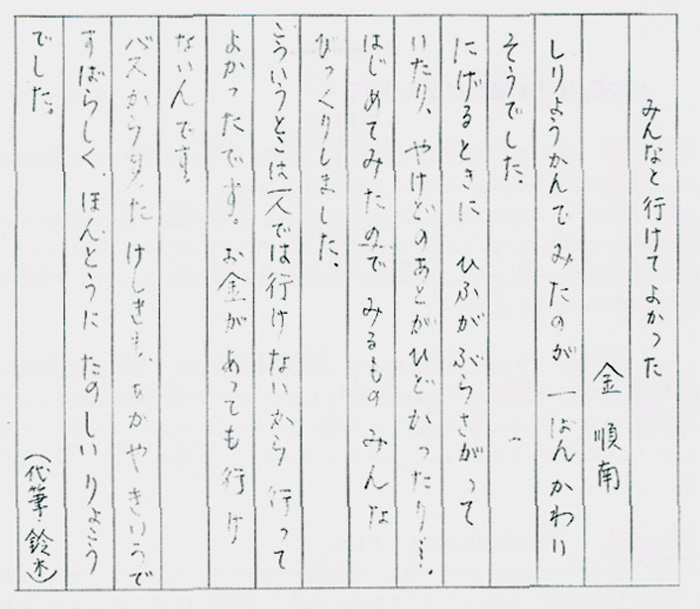 みんなと行けてよかった
金 順南
しりょうかんで みたのが 一ばん かわい
そうでした。
にげるときに ひふがぶらさがって
いたり、やけどのあとがひどかったり…。
はじめてみたので みるもの みんな
びっくりしました。
こういうとこは一人では行けないから 行って
よかったです。お金が あっても 行け
ないんです。
バスから見た けしきも、あかやきいろで
すばらしく、ほんとうに たのしい りょこう
でした。
（代筆・鈴木）